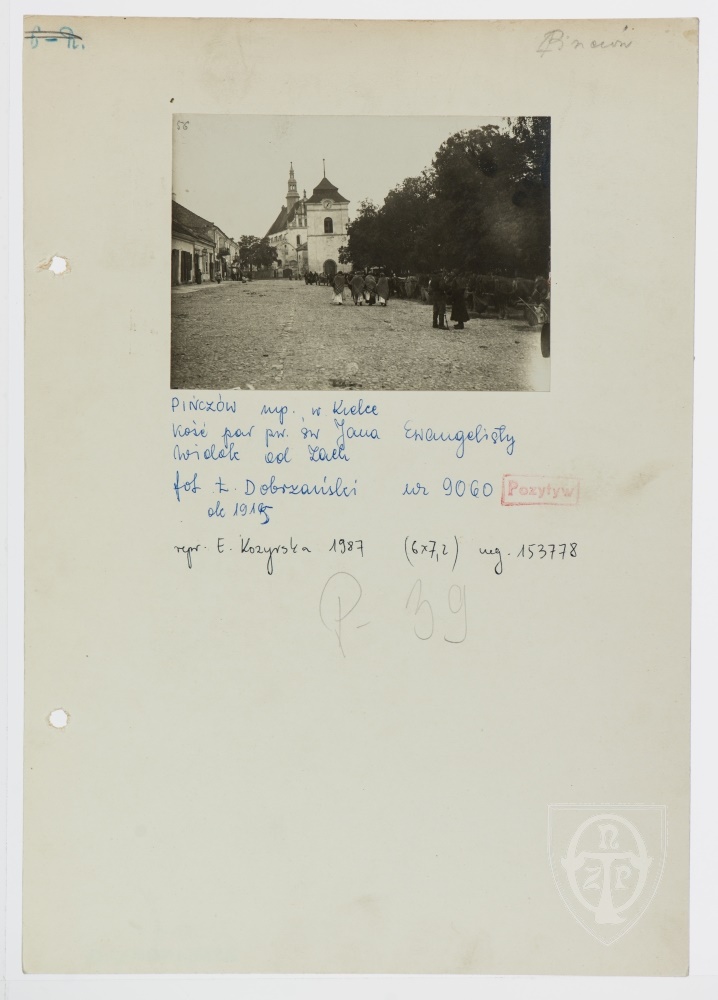 6-R.
Pinczów
56
PIŃCZÓW mp. w Kielce
Kość par pw. św Jana Ewangelisty
Widok od Zach
fot Ł. Dobrzański nr 9060 Pozytyw
ok 1915
repr. E. Kozyrska 1987 (6x7,2) neg. 153778
P- 39